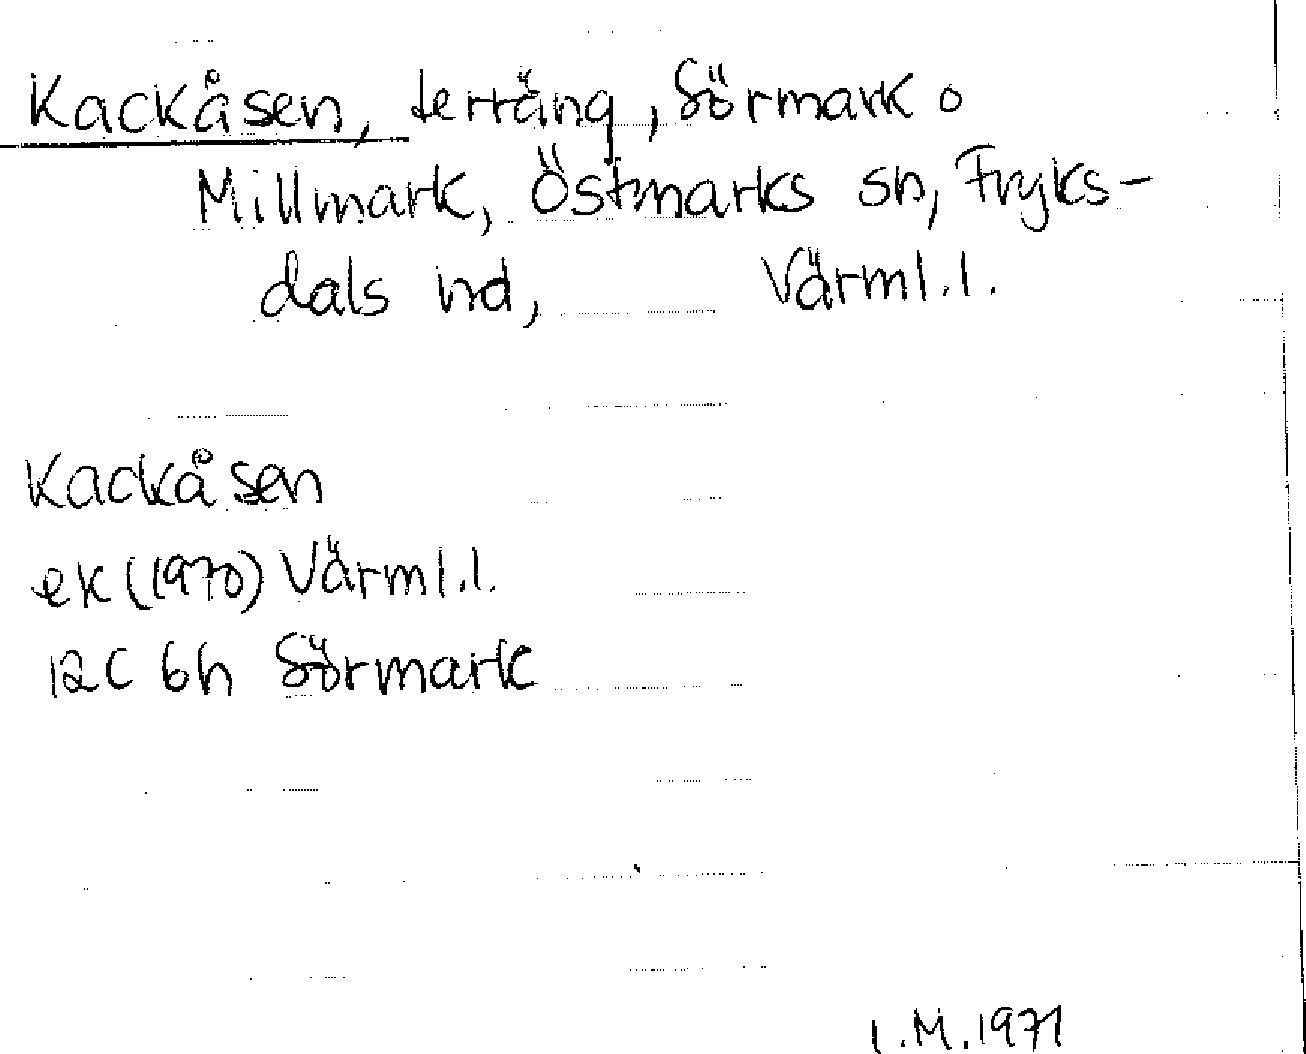 Kackåsen, terräng, Sörmark o
Millmark, Östmarks sn, Fryks-
dals hd, Värml.l.
Kackåsen
ek (1970) Värml.l.
12C 6h Sörmark
I.M.1971